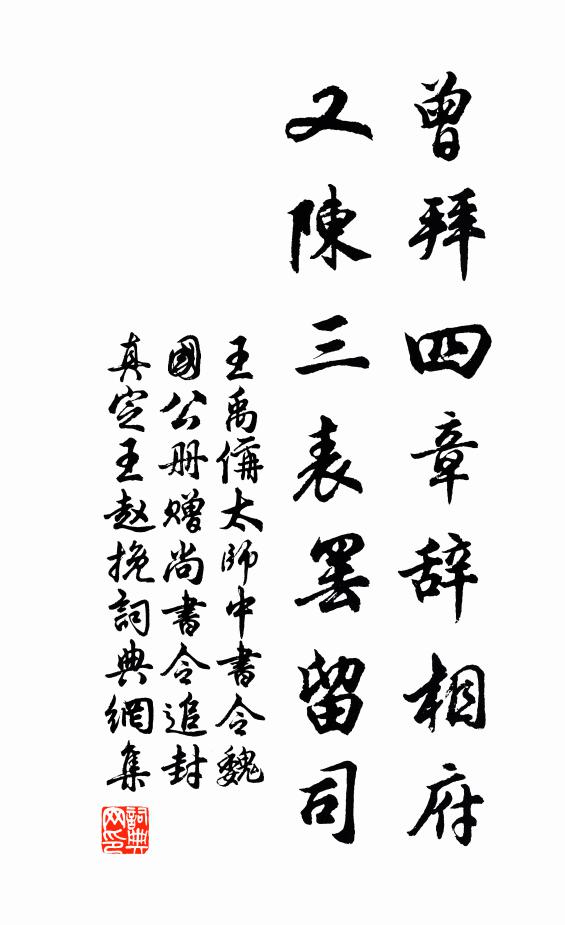 曾拜四章辞相府
又陳三表罢留司
王禹偁太師中書令魏
國公册赠尚書令追封
真定王赵挽詞典網集
詞典网印